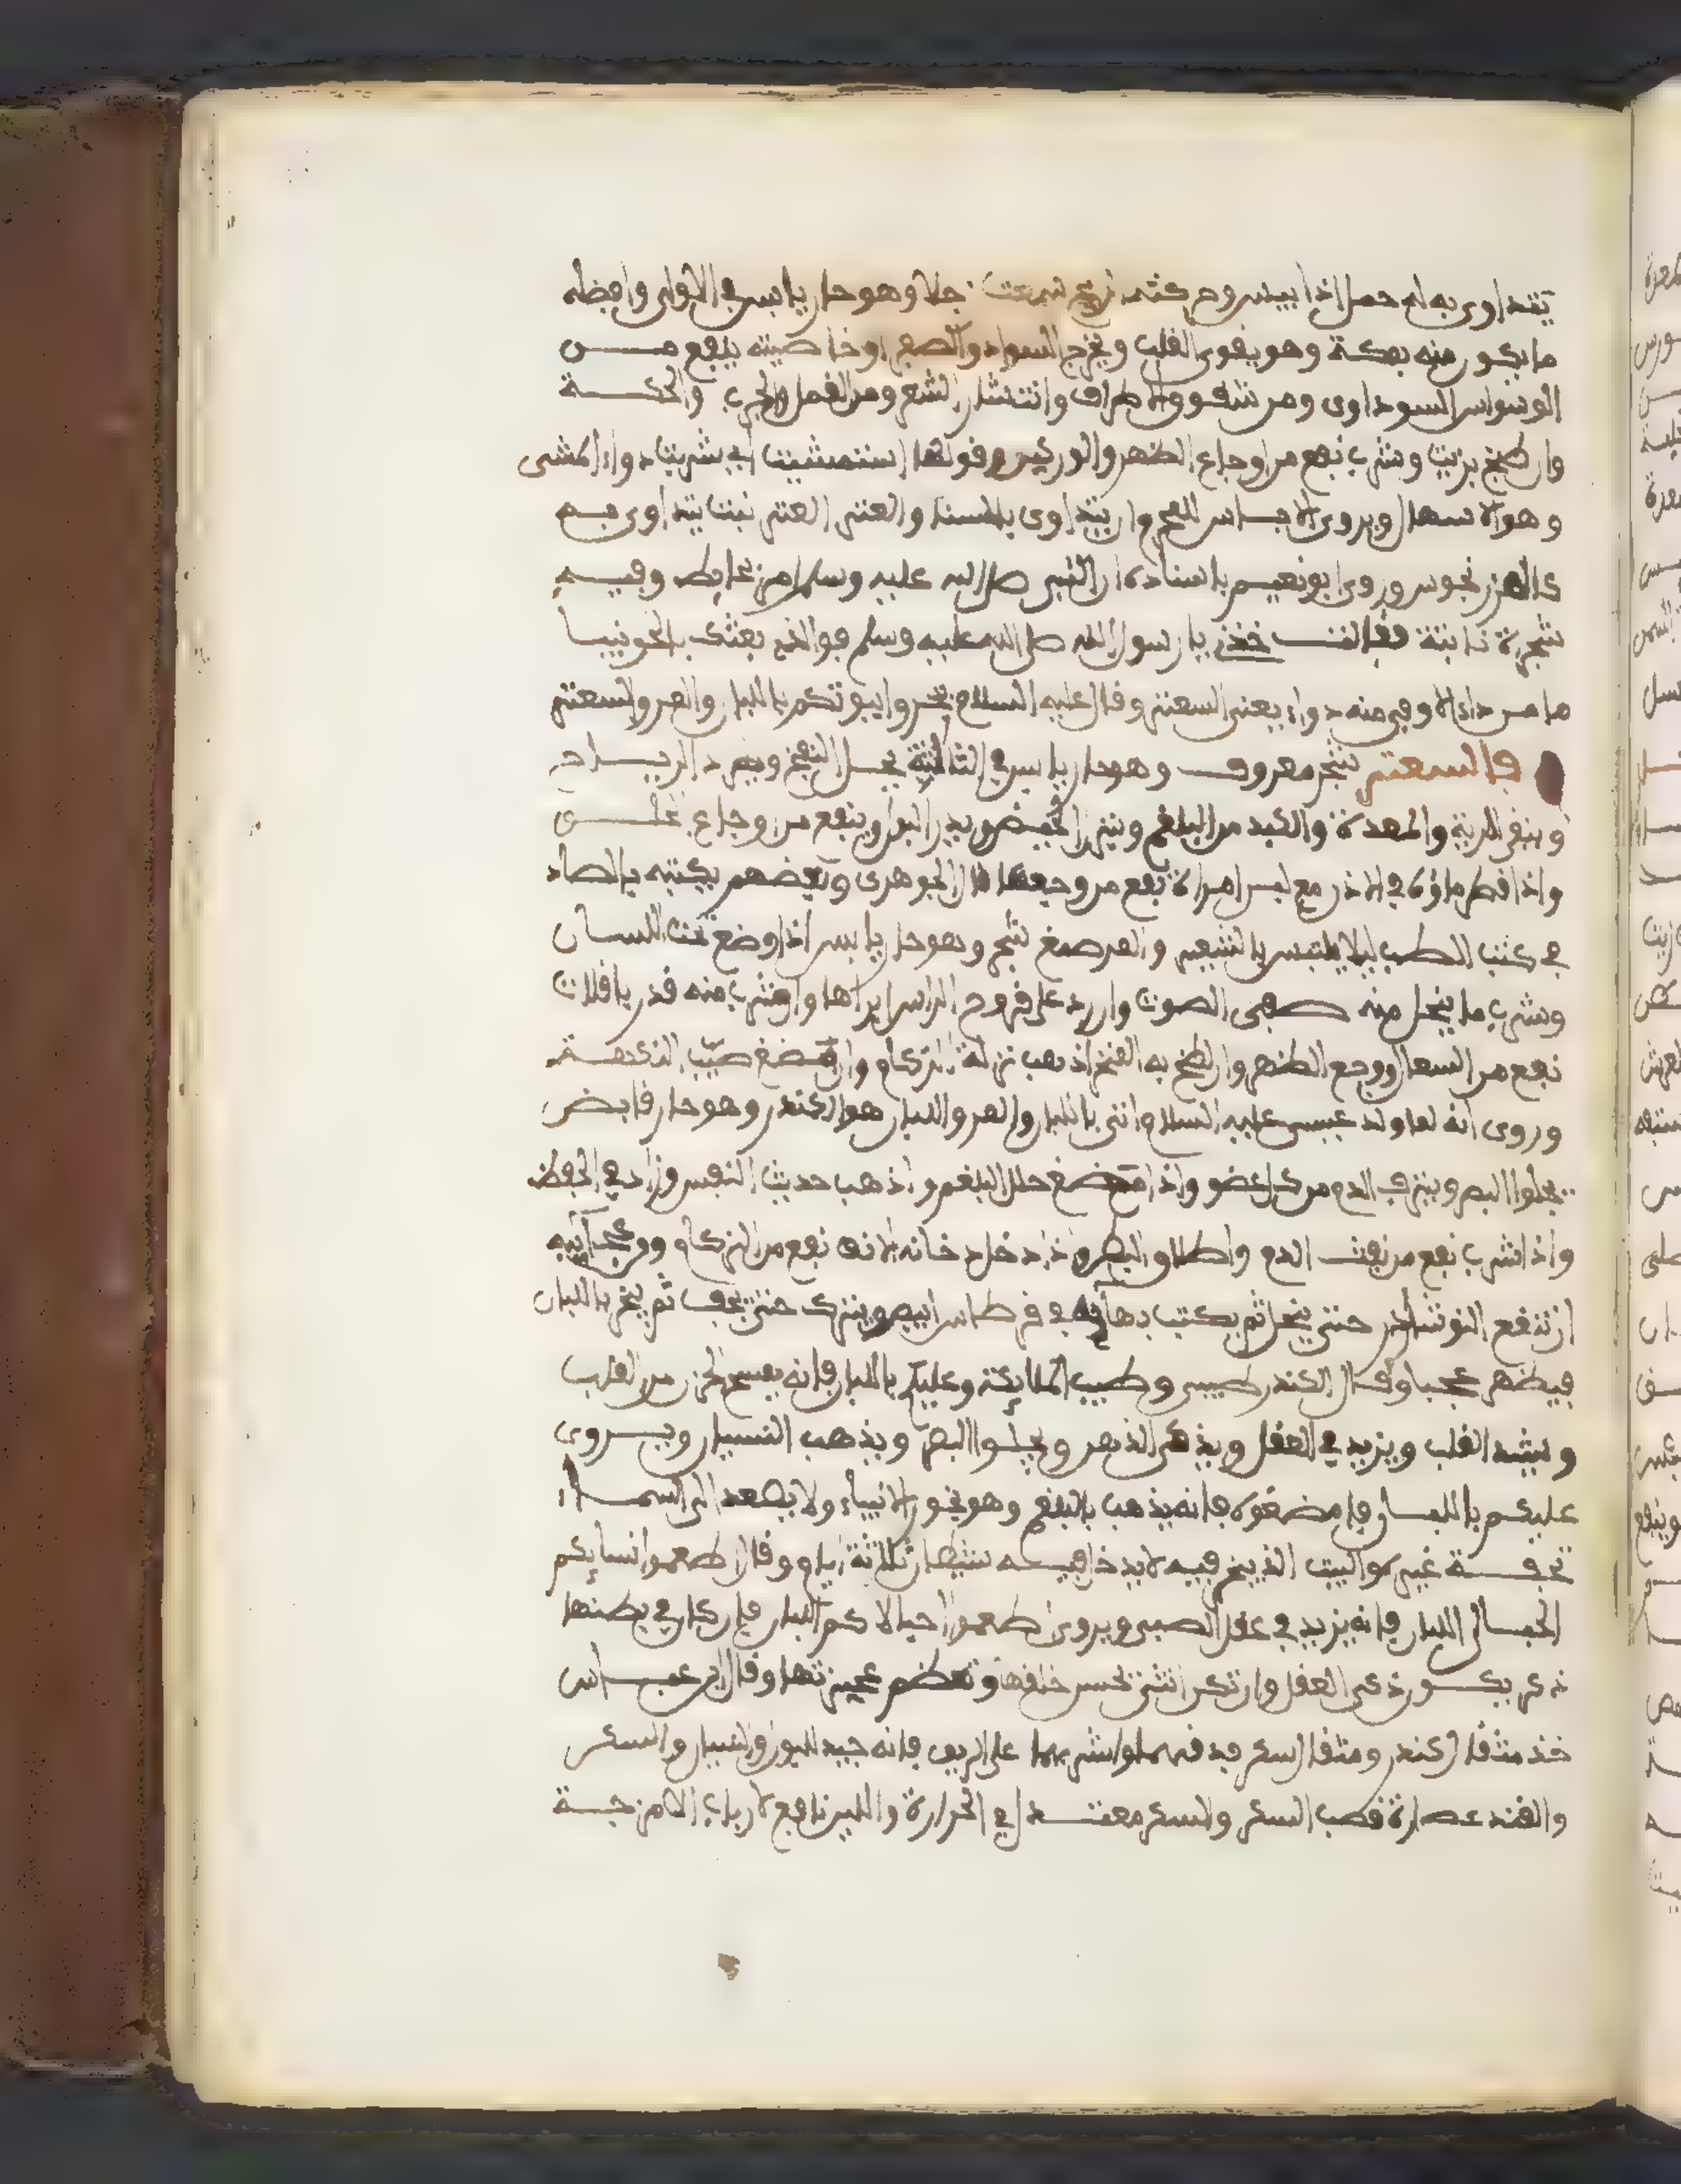 يتداوى به له حمل اذا يبس وحركته الريح سمعت جلا وهو حار يابس في الاولى وافضله
ما يكون منه بمكة وهو يقوي القلب ويخرج السوداء والصفرا وخاصيته ينفع من
الوسواس السوداوى ومن شقوق الاطراف وانتشار الشعر ومن القمل والجرب والحكة
وان طبخ بزيت وشرب نفع من اوجاع الظهر والوركين وقولها استمشيت اي شربت دواء المشى
وهو الاسهال ويروى لا باس للمحرم ان يتداوى بالسنا والعتر العتر نبت يتداوى به
كالمرزنجوش وروى ابو نعيم باسناده ان النبي صلى الله عليه وسلم من بحايط وفيه
شجرة نابتة فقالت خذني يا رسول الله صلى الله عليه وسلم فوالذي بعثك بالحق نبيا
ما من داء الا وفي منه دواء يعني السعتر وقال عليه السلام بخروا بيوتكم باللبان والمر والسعتر
فالسعتر شجر معروف وهو حار يابس في الثالثة يحلل النفخ ويطرد الرياح
وينقي الرية والمعدة والكبد من البلغم وينزل الحيض ويدر البول وينفع من اوجاع
واذا قطر ماؤه في الاذن مع لبن امراة نفع من وجعها قال الجوهرى وبعضهم يكتبه بالصاد
في كتب الطب ليلا يلتبس بالشعير والمر صمغ شجر وهو حار يابس اذا وضع تحت اللسان
وشرب ما ينحل منه صفى الصوت وان رد على قروح الراس ابراها وان شرب منه قدر باقلات
نفع من السعال ووجع الظهر وان لطخ به المنخر اذهب نزلة الزكام وان مضغ طيب النكهة
وروى انه لما ولد عيسى عليه السلام اتى باللبان والمر واللبان هو الكندر وهو حار قابض
يجلوا البصر وينزف الدم من كل عضو واذا مضغ حلل البلغم واذهب حديث النفس وزاد في الحفظ
واذا شرب نفع من نفث الدم واطلاق البطن واذا دخل دخانه الانف نفع من الزكام ومن عجائبه
ان تنقع النوشادر حتى ينحل ثم يكتب بها في قرطاس ابيض ويترك حتى يجف ثم يبخر باللبان
فيظهر عجبا وقال الكندر طيبي وطيب الملايكة وعليكم باللبان فانه يمسح الحزن من القلب
ويشد القلب ويزيد في العقل ويذكي الذهن ويجلوا البصر ويذهب النسيان ويروى
عليكم باللبان فامضغوه فانه يذهب بالبلغم وهو بخور الانبياء ولا يصعد الى السماء
بخة غيره والبيت الذي يبخر فيه لا يدخل فيه شيطان ثلاثة ايام وقال اطعموا انسايكم
الحبالى اللبان فانه يزيد في عقل الصبي ويروى اطعموا حبالاكم اللبان فان كان في بطنها
ذكر يكون ذكي العقل وان تكن انثى تحسن خلقها وتعظم عجيزتها وقال ابن عباس
خذ مثقال كندر ومثقال سكر فدقهما واشربهما على الريق فانه جيد للبول والنسيان والسكر
والقند عصارة قصب السكر والسكر معتدل في الحرارة واللين نافع لارباب الامزجة